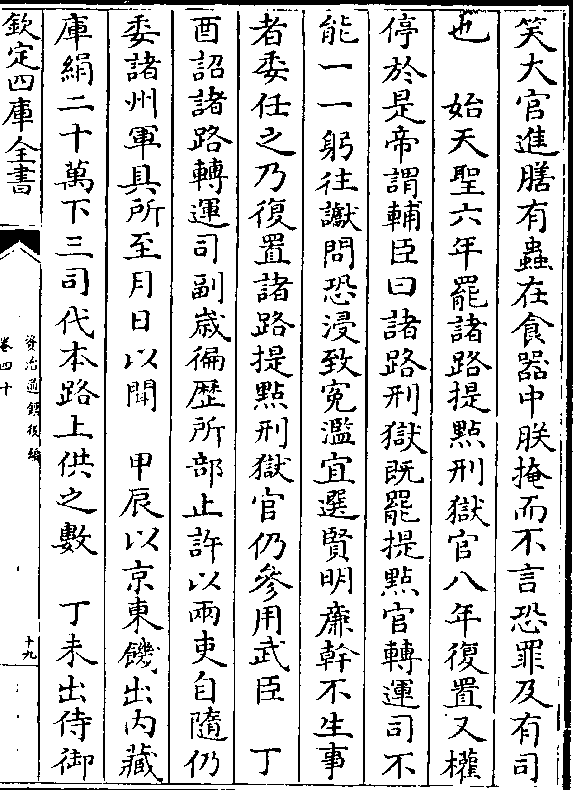 笑大官進膳有蟲在食器中朕掩而不言恐罪及有司
也　始天聖六年罷諸路提點刑獄官八年復置又權
停於是帝謂輔臣曰諸路刑獄既罷提點官轉運司不
能一一躬往讞問恐浸致寃濫宜選賢明亷幹不生事
者委任之乃復置諸路提點刑獄官仍參用武臣　丁
酉詔諸路轉運司副歲徧歴所部止許以兩吏自隨仍
委諸州軍具所至月日以聞　甲辰以京東饑出内藏
庫絹二十萬下三司代本路上供之數　丁未出侍御
欽定四庫全書
資治通鑑後編
卷四十
十九